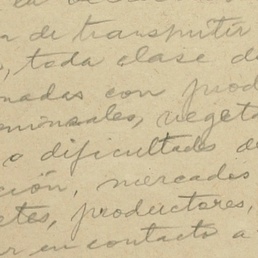 de transmitir
, toda clase de
nadas con prod
minsales, vegeta
o dificultades de
ción, mercados
etes, productores,
r en contacto a